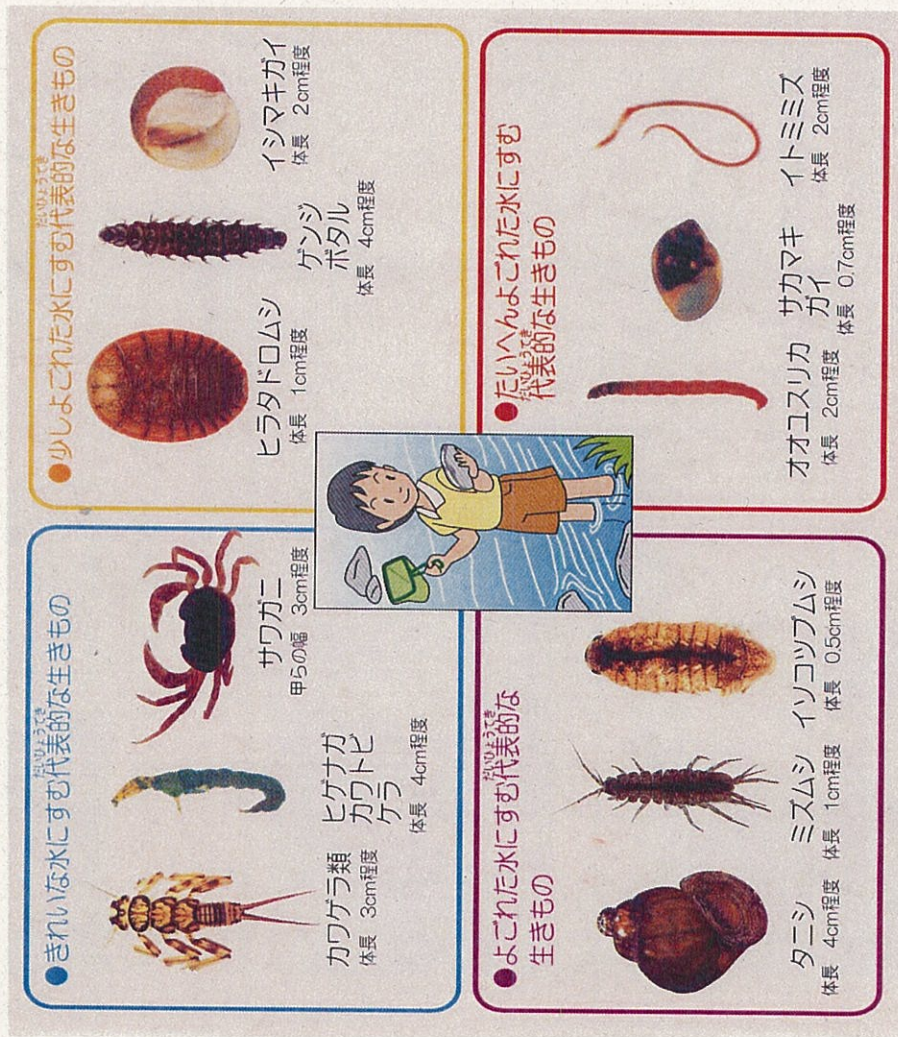 ●きれいな水にすむ代表的な生きもの
だいひょうてき
カワゲラ類
体長 3cm程度
ヒゲナガ
カワトビ
ケラ
体長 4cm程度
サワガニ
甲らの幅 3cm程度
●少しよごれた水にすむ代表的な生きもの
だいひょうてき
ヒラタドロムシ
体長 1cm程度
ゲンジ
ボタル
体長 4cm程度
イシマキガイ
体長 2cm程度
●よごれた水にすむ代表的な
だいひょうてき
生きもの
タニシ
体長 4cm程度
ミズムシ
体長 1cm程度
イソコツブムシ
体長 0.5cm程度
●たいへんよごれた水にすむ
代表的な生きもの
だいひょうてき
オオユスリカ
体長 2cm程度
サカマキ
ガイ
体長 0.7cm程度
イトミミズ
体長 2cm程度